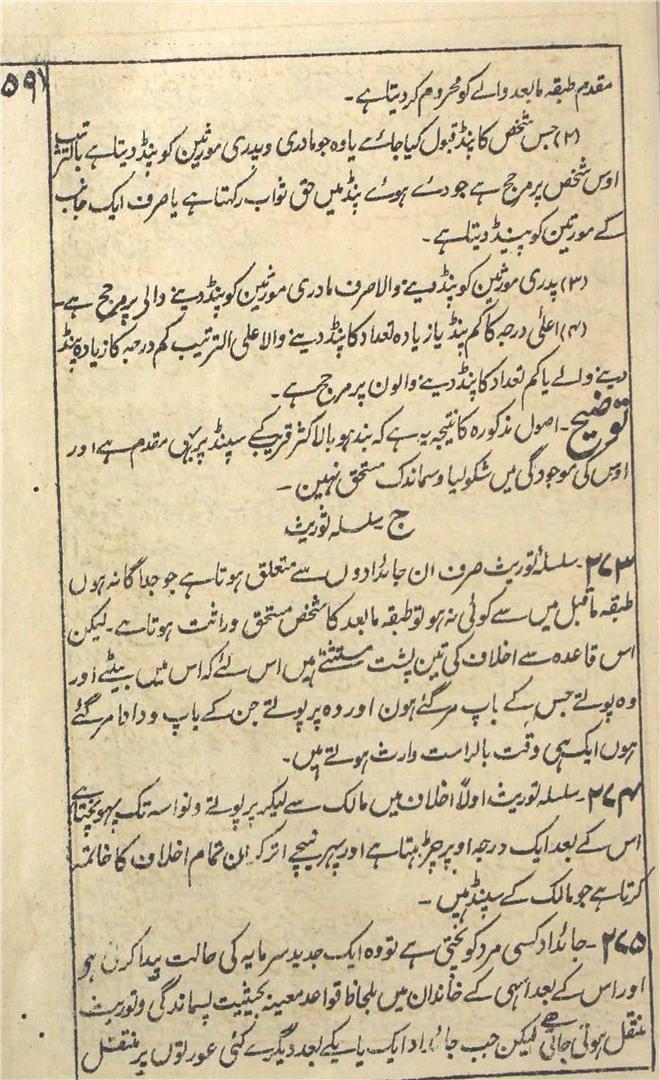 ۵۹۱
مقدم طبقہ مابعد والے کو محروم کر دیتا ہے۔
(۲) جس شخص کا پنڈ قبول کیا جائے یا وہ جو مادری و پدری مورثین کو پنڈ دیتا ہے بالترتیب
اوس شخص پر مرجح ہے جو دئے ہوئے پنڈ میں حق ثواب رکھتا ہے یا صرف ایک جانب
کے مورثین کو پنڈ دیتا ہے۔
(۳) پدری مورثین کو پنڈ دینے والا صرف مادری مورثین کو پنڈ دینے والی پر مرجح ہے۔
(۴) اعلیٰ درجہ کا کم پنڈ یا زیادہ تعداد کا پنڈ دینے والا علی الترتیب کم درجہ کا زیادہ پنڈ
دینے والے یا کم تعداد کا پنڈ دینے والون پر مرجح ہے۔
توضیح۔ اصول مذکورہ کا نتیجہ یہ ہے کہ بندہو بالاکثر قریب کے سپنڈ پر بھی مقدم ہے اور
اوس کی موجودگی میں شکولیا و سماندک مستحق نہین۔
ج سلسلہ توریث
۲۷۳۔ سلسلۂ توریث صرف ان جائدادوں سے متعلق ہوتا ہے جو جداگانہ ہوں
طبقہ ماقبل میں سے کوئی نہ ہو تو طبقہ مابعد کا شخص مستحق وراثت ہوتا ہے۔ لیکن
اس قاعدہ سے اخلاف کی تین پشت مستثنےٰ ہیں اس لئے کہ اس میں بیٹے اور
وہ پوتے جس کے باپ مر گئے ہون اور وہ پرپوتے جن کے باپ و دادا مر گئے
ہوں ایک ہی وقت بالراست وارث ہوتے ہیں۔
۲۷۴۔ سلسلہ توریث اولاً اخلاف میں مالک سے لیکر پرپوتے و نواسہ تک پہونچتا ہے
اس کے بعد ایک درجہ اوپر چڑہتا ہے اور پہر نیچے اتر کر ان تمام اخلاف کا خاتمہ
کرتا ہے جو مالک کے سپنڈ ہیں۔
۲۷۵۔ جائداد کسی مرد کو پہنچتی ہے تو وہ ایک جدید سرمایہ کی حالت پیدا کرتی ہو
اور اس کے بعد اسی کے خاندان میں بلحاظ قواعد معینہ بحیثیت پسماندگی و توریث
منتقل ہوتی جاتی ہے لیکن جب جائداد ایک یا یکے بعد دیگرے کئی عورتوں پر منتقل